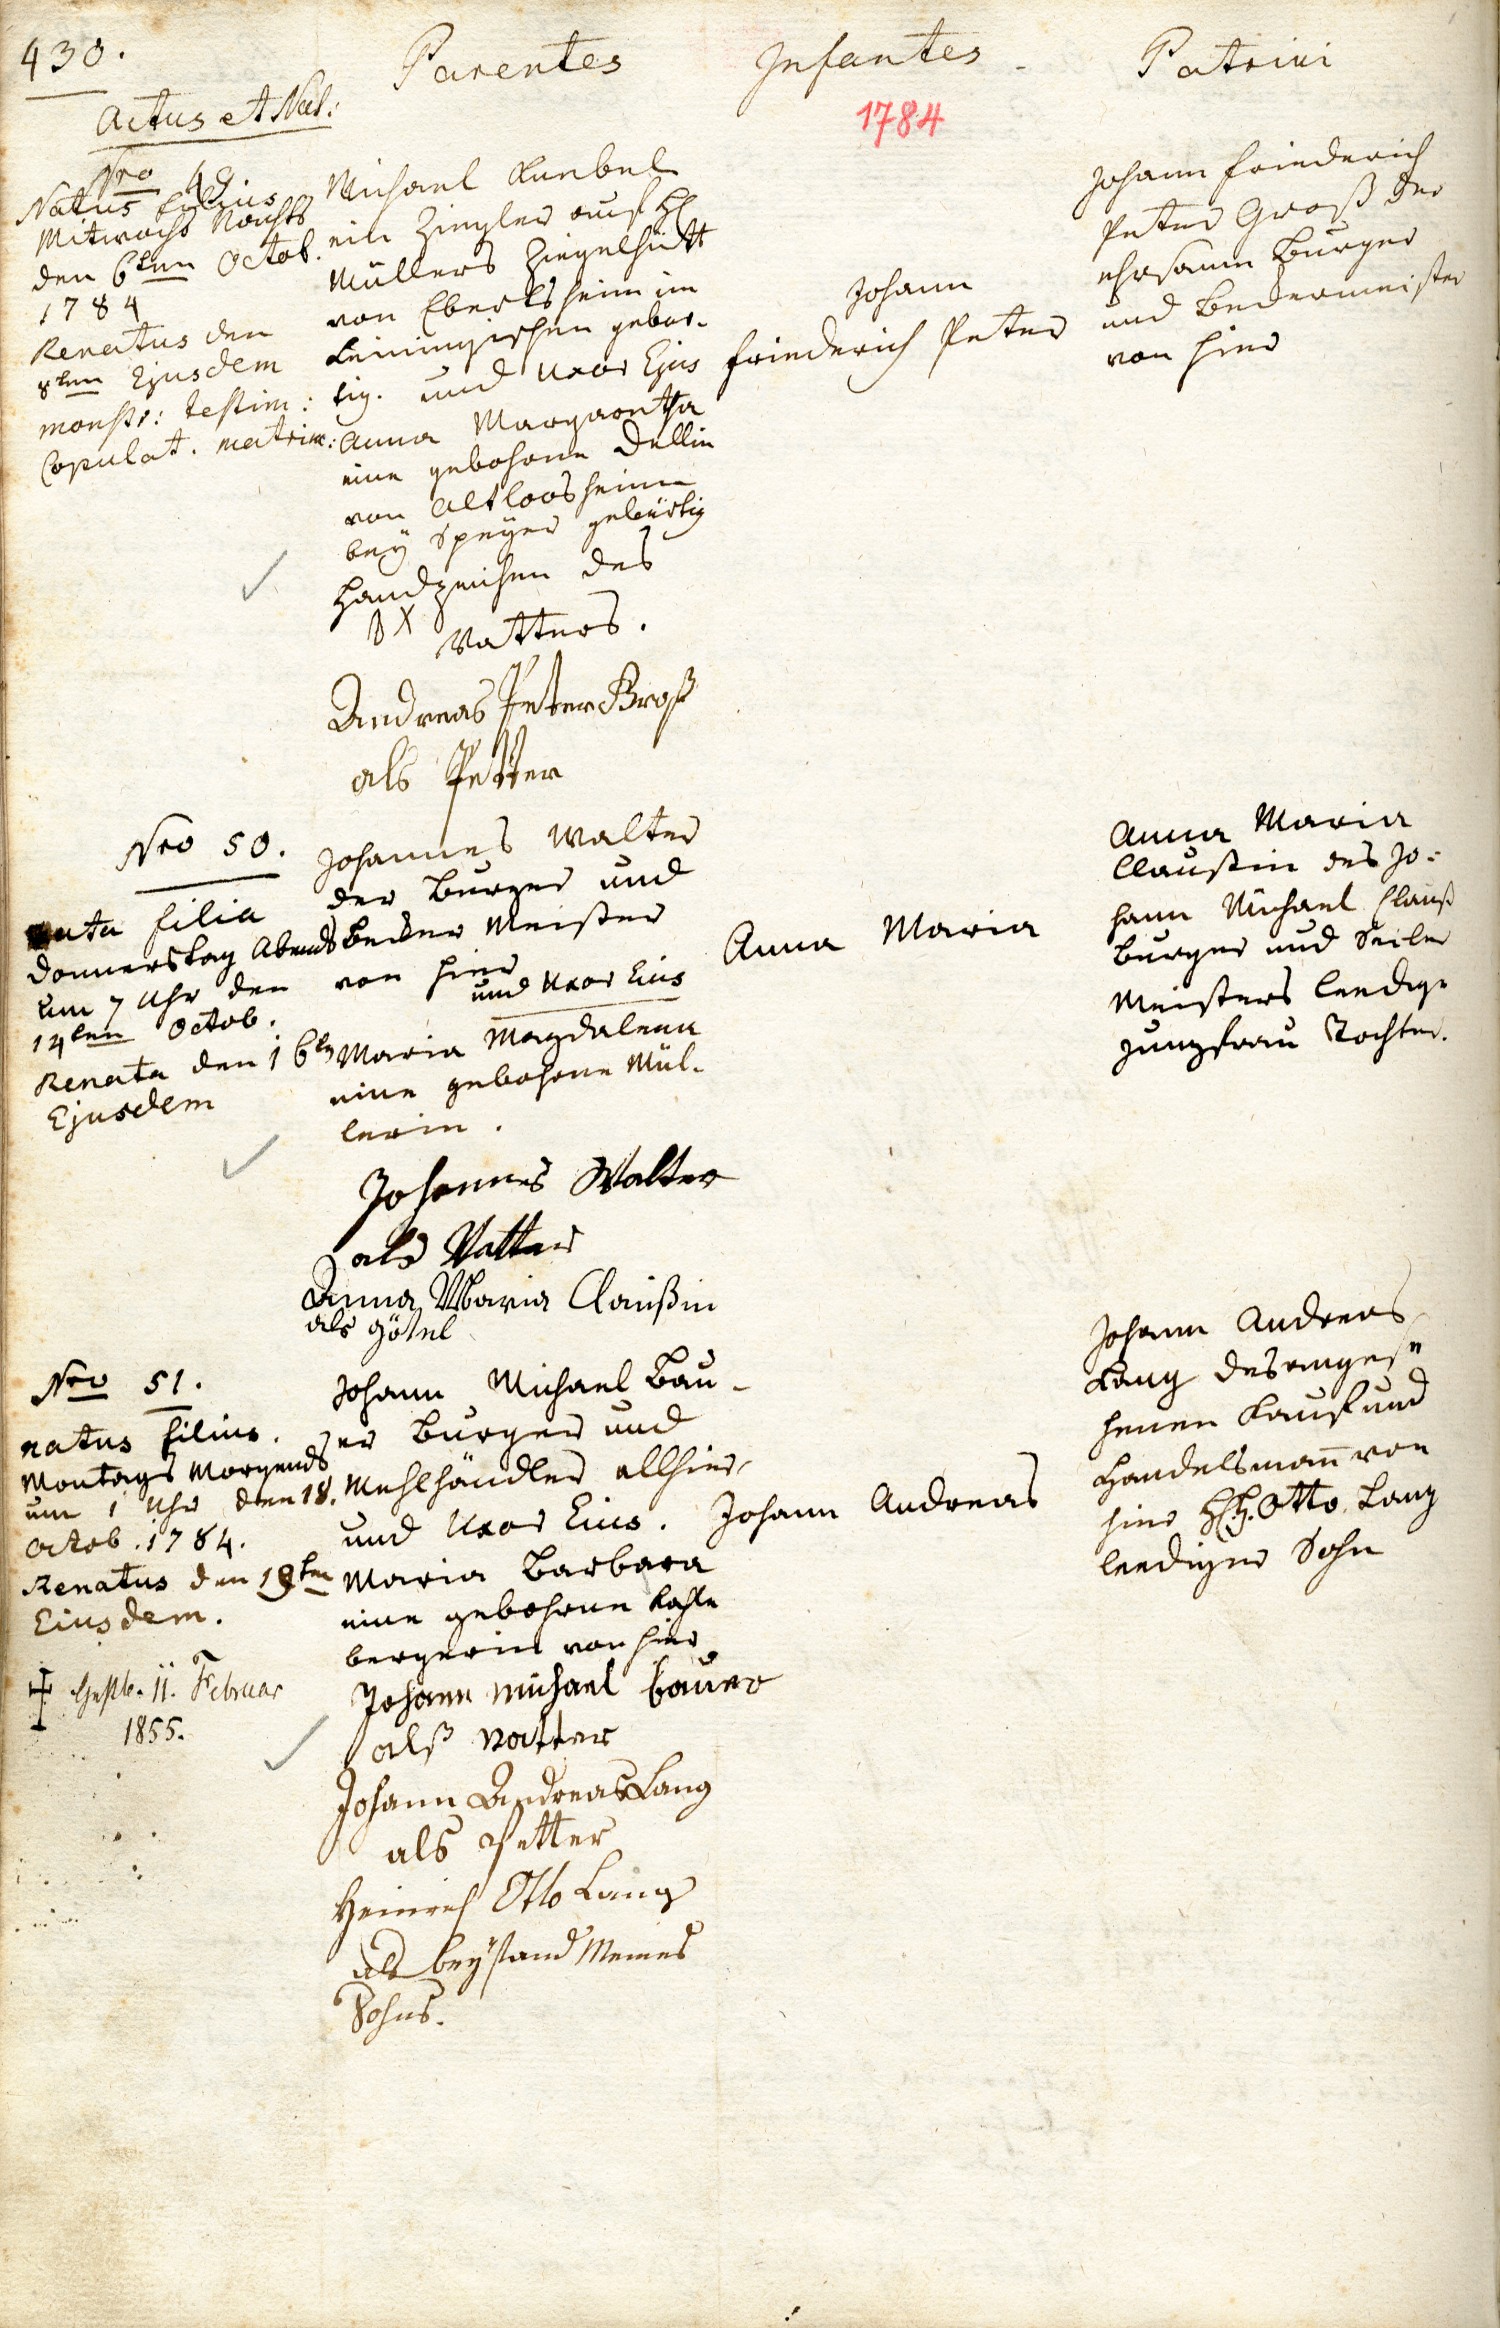 430.
Parentes Infantes Patrini
Actus et Nat:
1784
Nro 49
Natus filius
Mitwochs Nachts
den 6ten Octob.
1784
Renatus den
8ten Ejusdem
monstr: testim:
Copulat. matrim:
Michael Knebel
ein Ziegler auf H
Müllers Ziegelhütt
von Ebertsheim im
Leiningischen gebür-
tig. und Uxor Ejus
Anna Margaretha
eine gebohrne Dellin
von Altloosheim
bey Speyer gebürtig
Handzeichen des
X
Vatters.
Andreas Peter Groß
als Petter
Johann
Friederich Peter
Johann Friederich
Peter Groß der
ehrsame Burger
und Beckermeister
von hier
Nro 50.
nata filia
Donnerstag Abends
um 7 Uhr den
14ten Octob.
Renata den 16ten
Ejusdem
Johannes Walter
der Burger und
Becker Meister
von hier
und Uxor Eius
Maria Magdalena
eine gebohrne Mül-
lerin.
Johannes Walter
als Vatter
Anna Maria Claußin
als Götel
Anna Maria
Anna Maria
Claussin des Jo=
hann Michael Clauß
Burger und Seiler
Meisters leedige
Jungfrau Tochter.
Nro 51.
natus filius.
Montags Morgends
um 1 Uhr den 18.
Octob. 1784.
Renatus den 19ten
Eiusdem.
Gestb. 11. Februar
1855.
Johann Michael Bau-
er Burger und
Mehlhändler allhier,
und Uxor Eius.
Maria Barbara
eine gebohrne Kahle
bergerin von hier
Johann Michael Bauer
alß Vatter
Johann Andreas Lang
als Petter
Heinrich Otto Lang
als beystand Meines
Sohns.
Johann Andreas
Johann Andreas
Lang des angese
henen Kauf und
Handelsmann von
hier H. Otto Lang
leediger Sohn